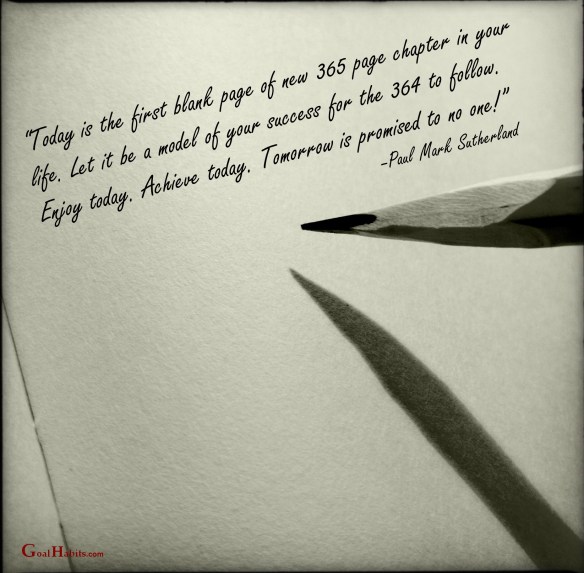 "Today is the first blank page of new 365 page chapter in your
life. Let it be a model of your success for the 364 to follow.
Enjoy today. Achieve today. Tomorrow is promised to no one!"
-Paul Mark Sutherland
GoalHabits.com